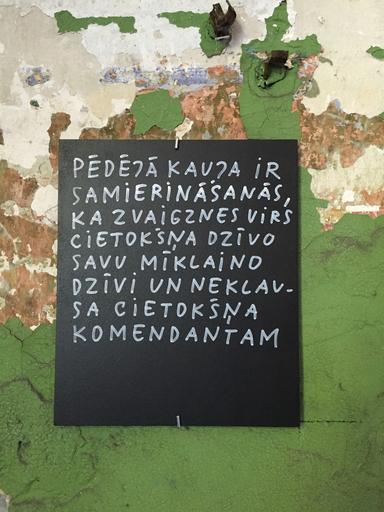 PĒDĒJĀ KAUJA IR
SAMIERINĀŠANĀS,
KA ZVAIGZNES VIRS
CIETOKŠŅA DZĪVO
SAVU MĪKLAINO
DZĪVI UN NEKLAU-
SA CIETOKŠŅA
KOMENDANTAM